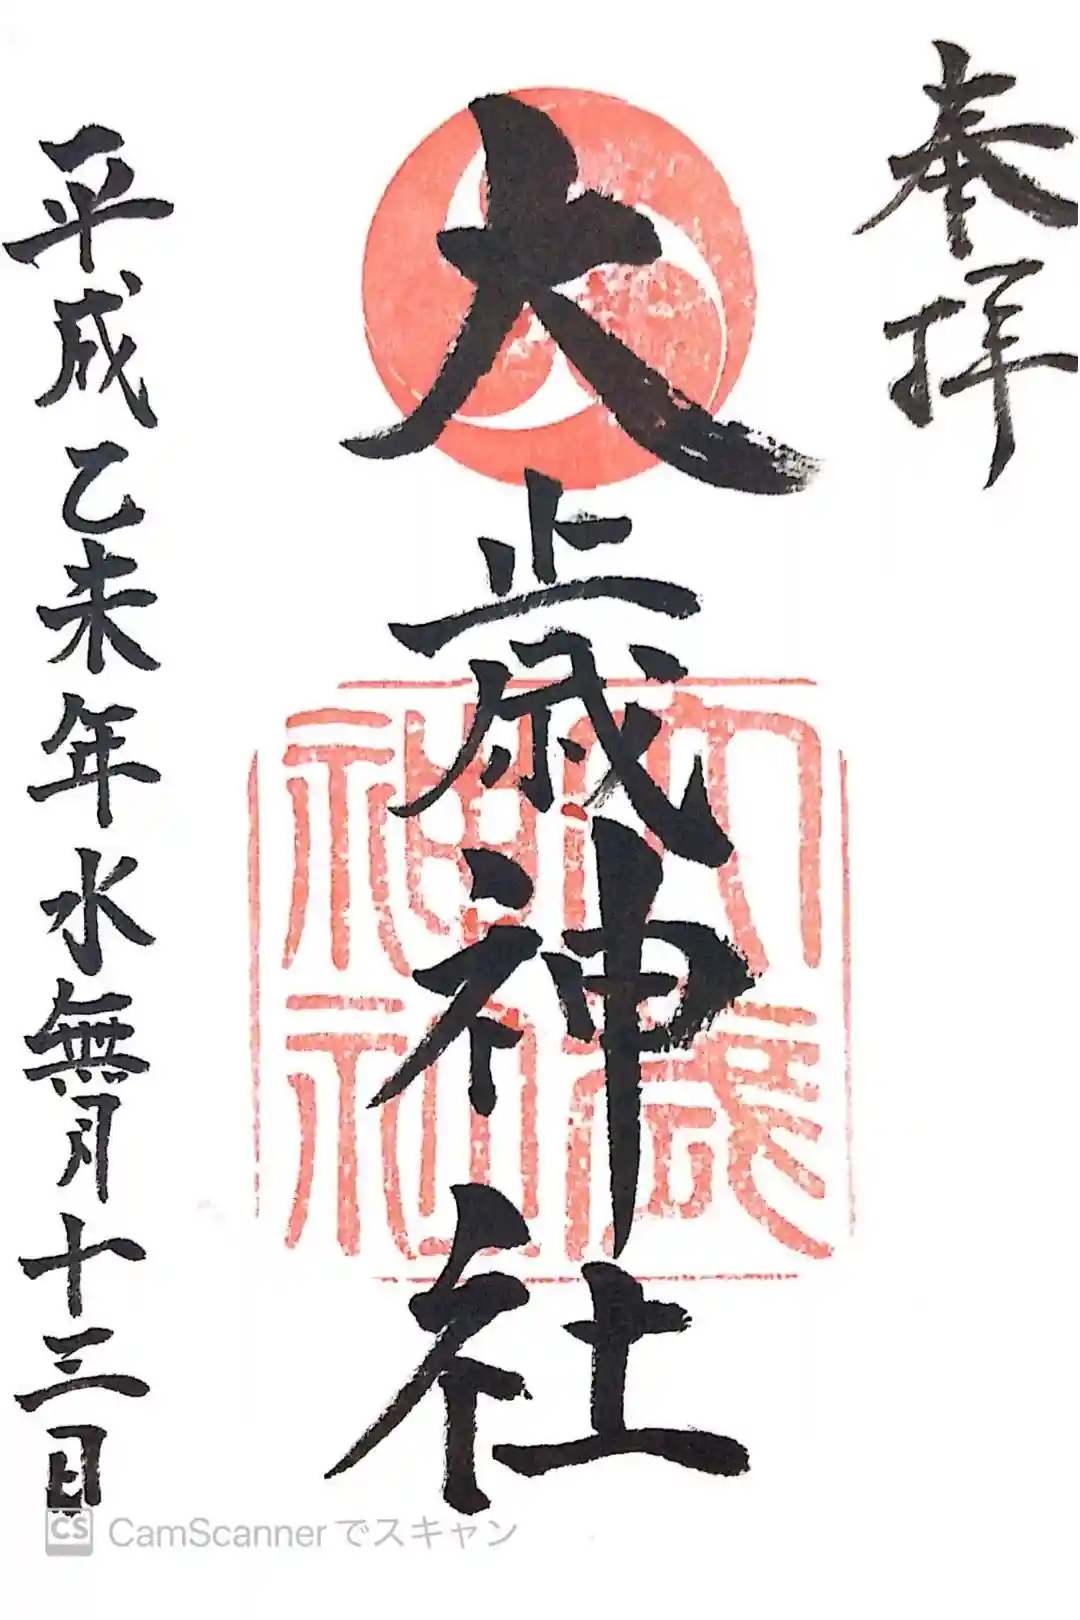 奉拝
大歳神社
大歳
神社
平成乙未年水無月十三日
CS CamScannerでスキャン